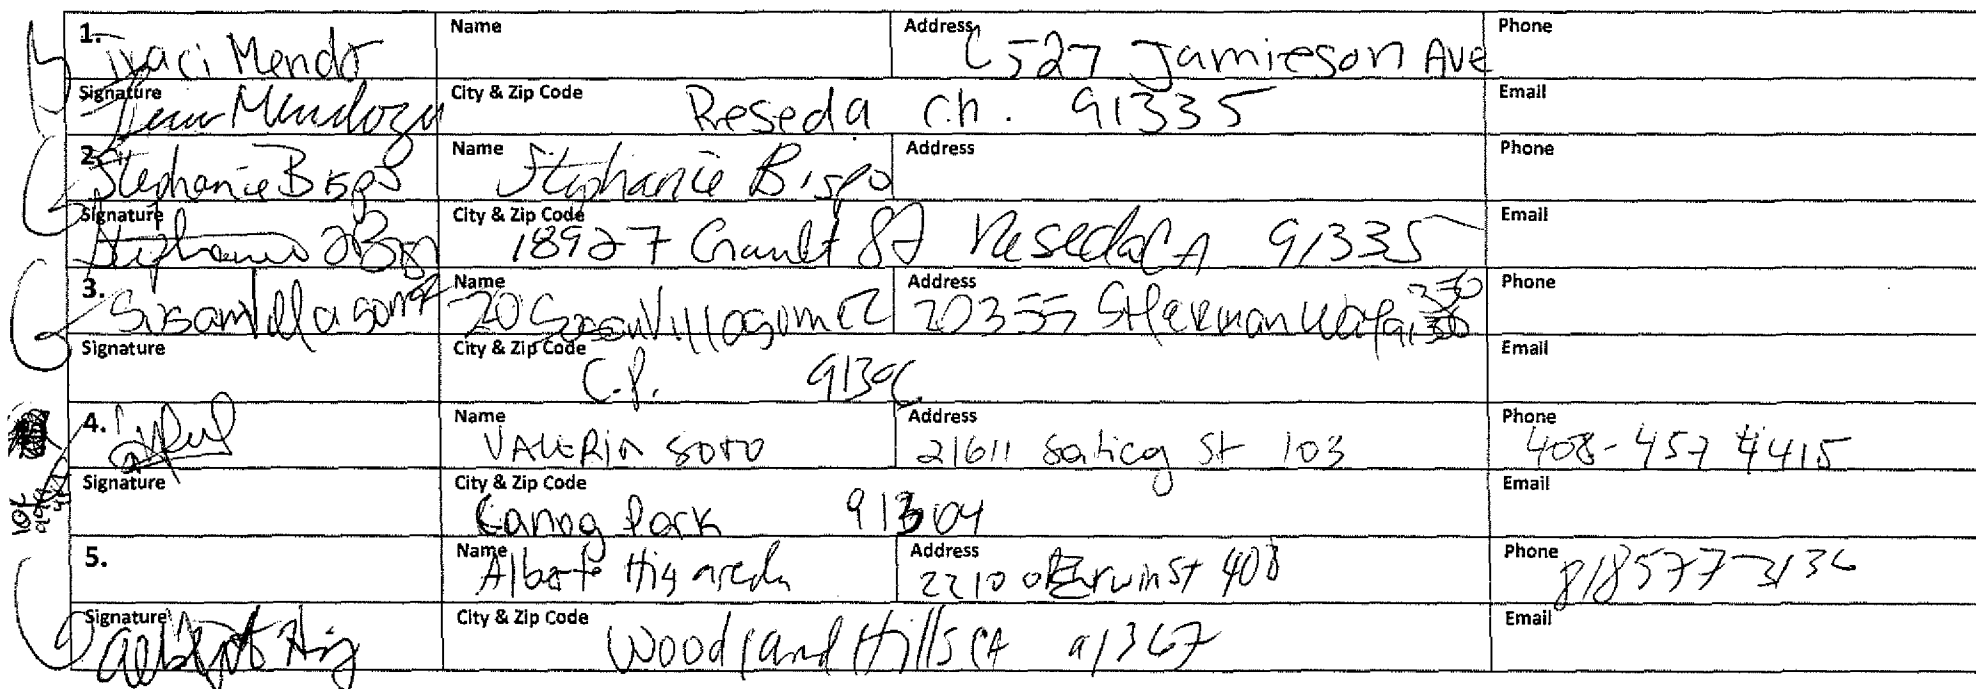 1. Traci Mendo Name Address 6527 Jamieson Ave Phone
Signature Mendoza City & Zip Code Reseda Ca. 91335 Email
2. Stephanie Bispo Name Stephanie Bispo Address Phone
Signature Stephanie Bispo City & Zip Code 18927 Gault St Reseda CA 91335 Email
3. Susan Villagomez Name Susan Villagomez Address 20355 Sherman Way Phone
Signature City & Zip Code C.P. Email
4. Name VALERIA SOTO Address 21611 Saticoy St 103 Phone 408-457 4415
Signature City & Zip Code Canoga Park 91304 Email
5. Name Alberto Higareda Address 22100 Erwin St 408 Phone 818577-3136
Signature City & Zip Code Woodland Hills CA 91367 Email